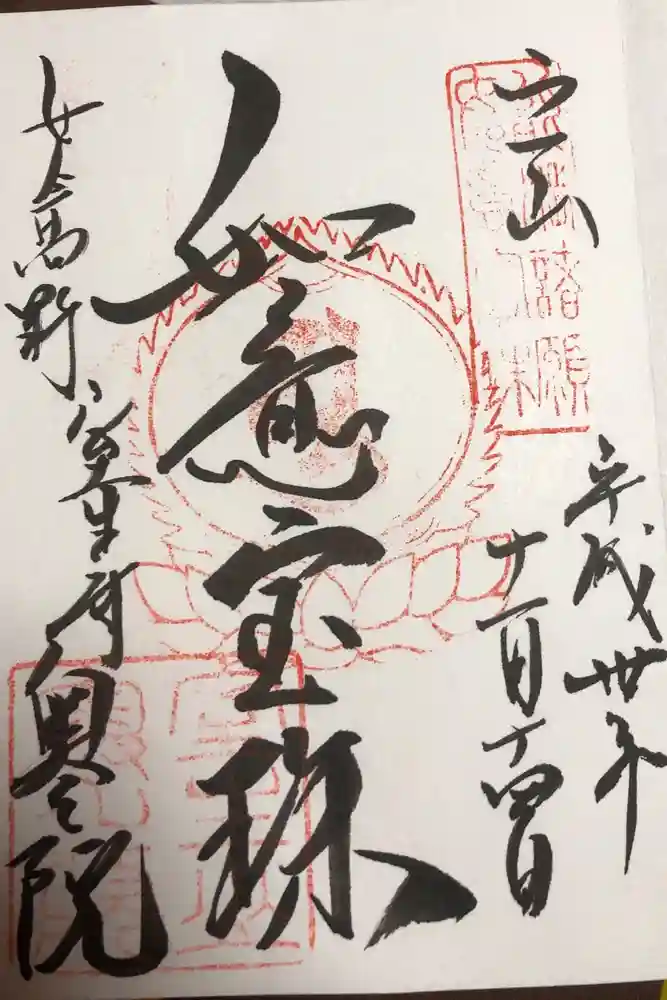 宀一山
平成卅年
十一月十四日
如意宝珠
女人高野 室生寺奥之院